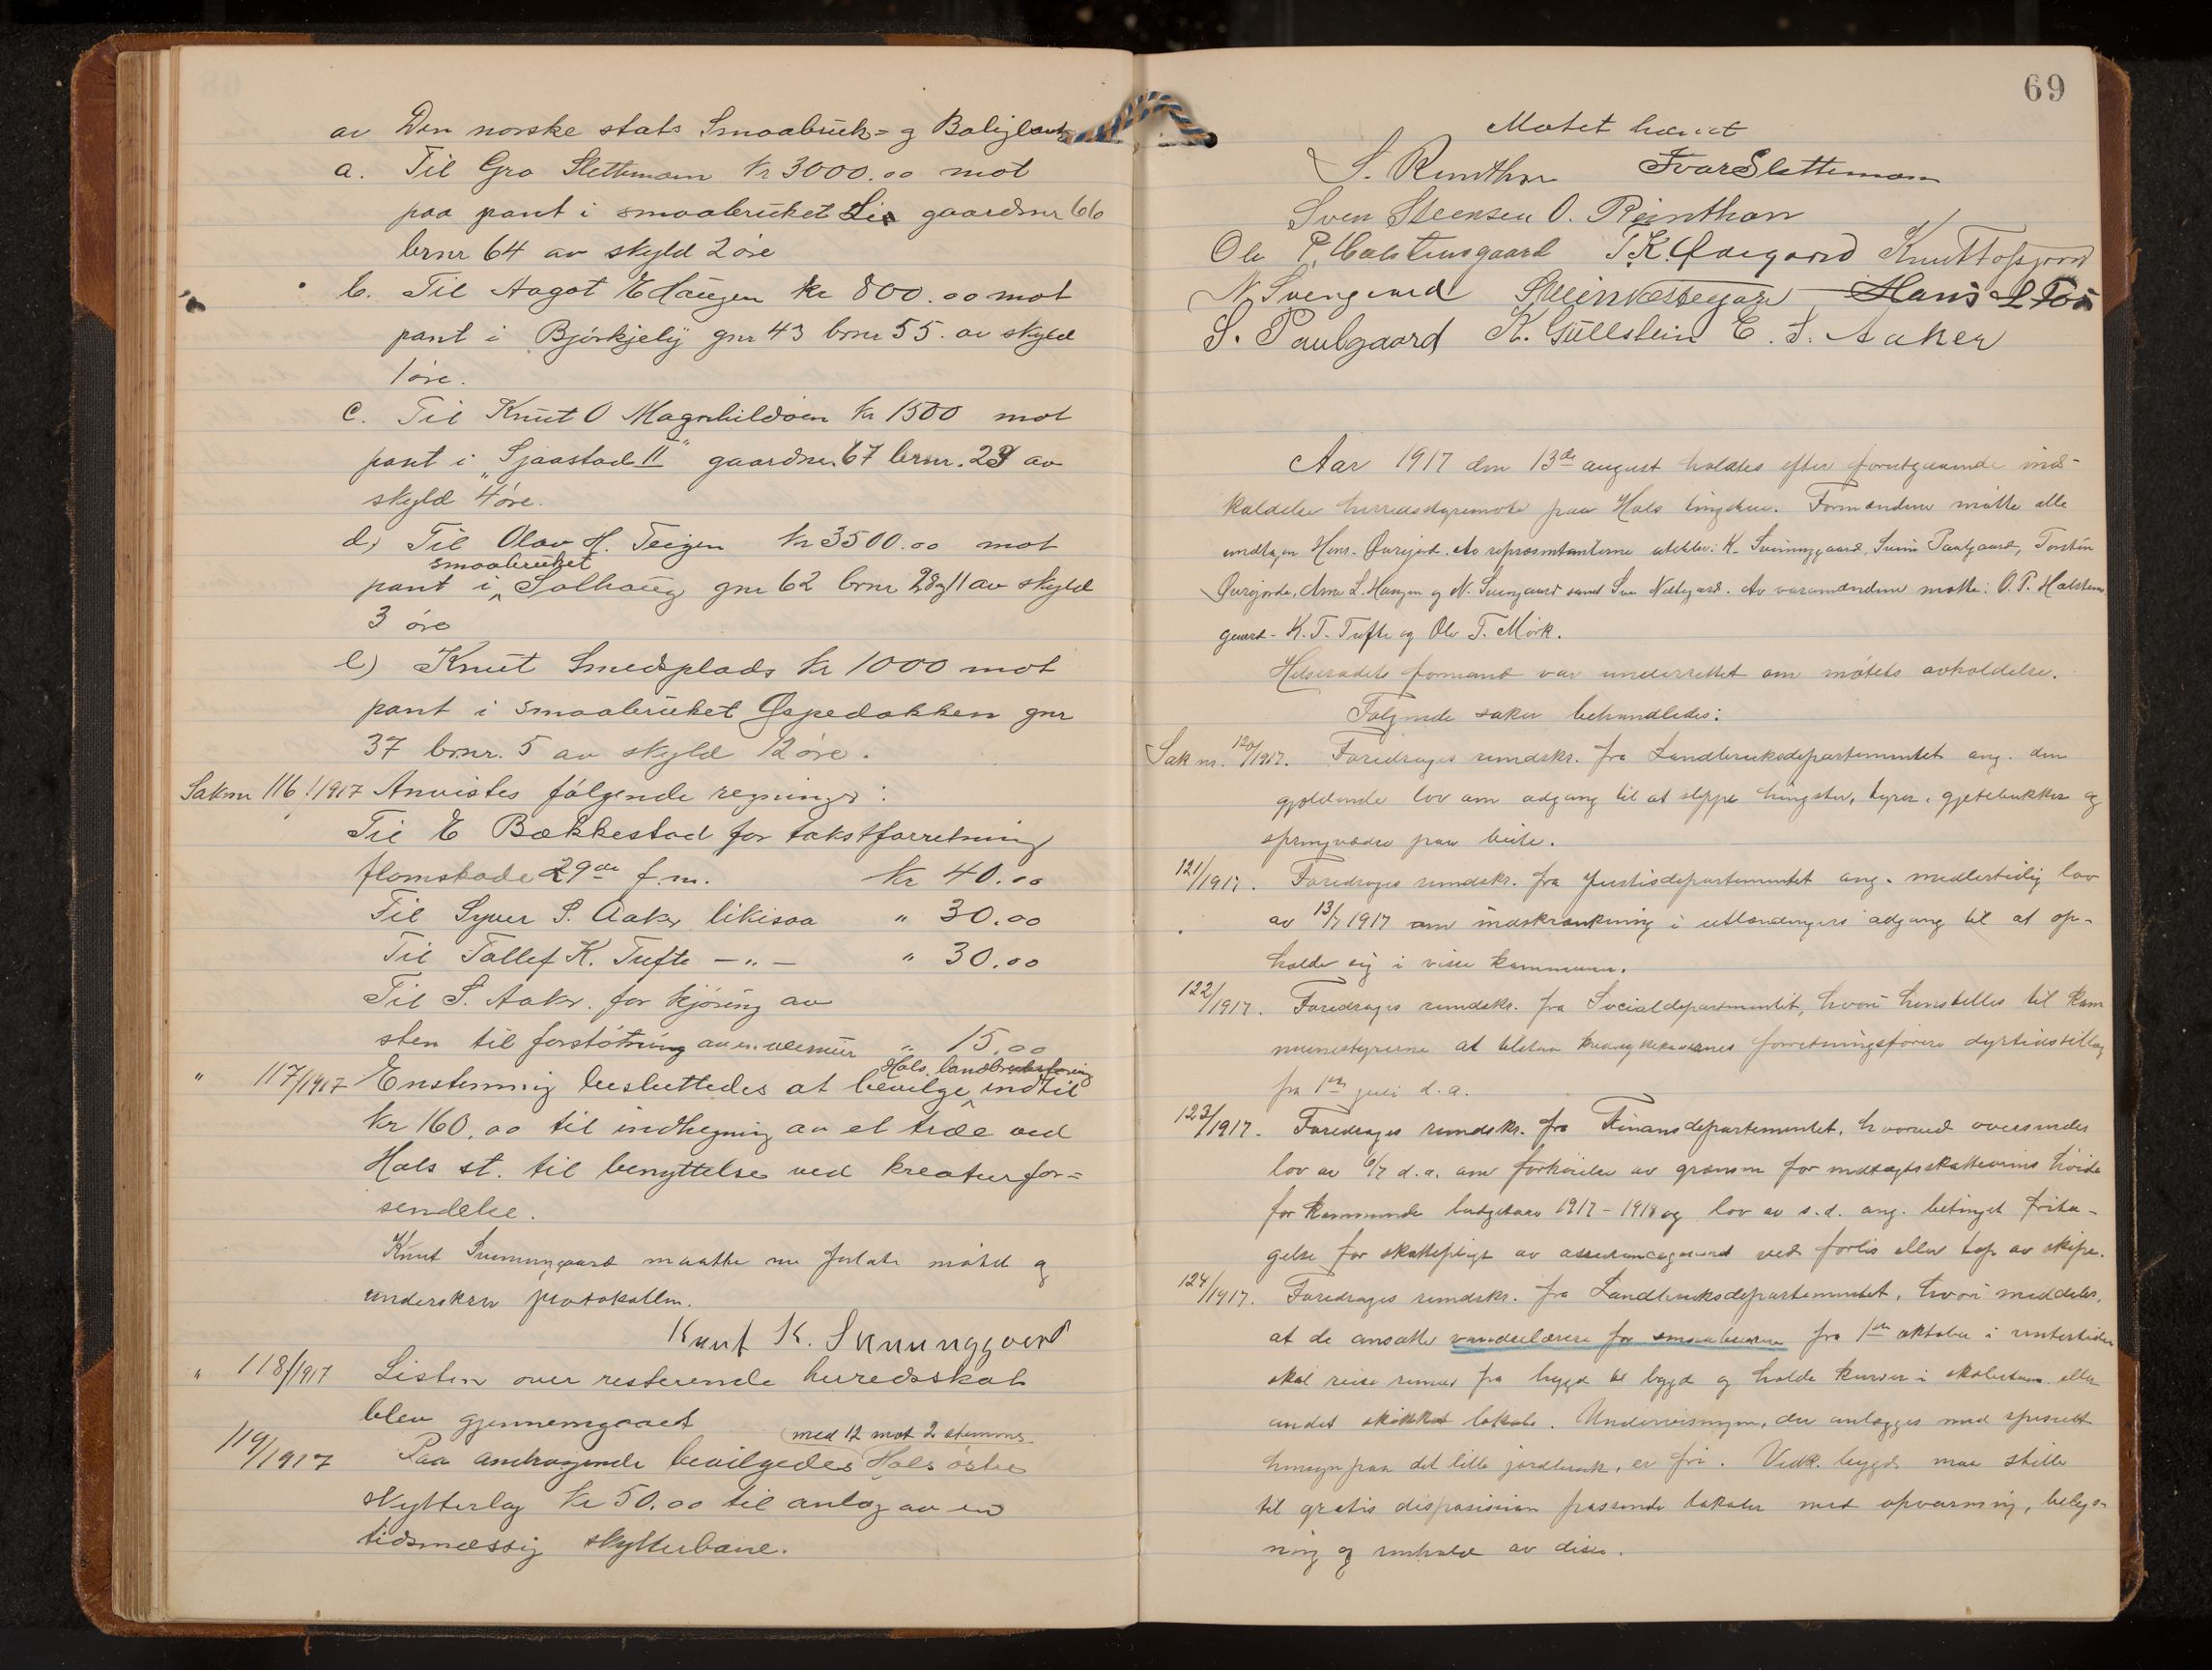 av Den norske stats Smaabruk= og Boligbank
a. Til Gro Slettemoen kr 3000.00 mot
paa pant i smaabruket Lia gaardsnr 66
brnr 64 av skyld 2 øre
b. Til Aagot E Haugen kr 800.00 mot
pant i Bjørkjely gnr 43 brnr 55. av skyld
1 øre.
c. Til Knut O Magnhildøen kr 1500 mot
pant i "Sjaastad II" gaardsnr. 67 brnr. 29 av
skyld 4 øre.
d) Til Olav H. Teigen kr 3500.00 mot
smaabruket
pant i Solhaug gnr 62 brnr 28 og 11 av skyld
3 øre
e) Knut Smedsplads kr 1000 mot
pant i smaabruket Øspedokken gnr
37 brnr. 5 av skyld 12 øre.
Saknr 116/1917 Anvistes følgende regninger:
Til E Bækkestad for takstforretning
flomskade 29de f.m. kr 40.00
Til Syver S. Aaker likesaa " 30.00
Til Tollef K. Tufte — " — " 30.00
Til S. Aaker. for kjøring av
sten til forstøtning av en veimur " 15.00
Hols landbruksforening
" 117/1917 Enstemmig besluttedes at bevilge indtil
kr 160.00 til indhegning av et træe ved
Hols st. til benyttelse ved kreaturfor=
sendelse.
Knut Sunungaard maatte nu forlate møtet og
underskrev protokollen.
Knut K. Sunungaard
" 118/1917 Listen over resterende herredsskat
blev gjennemgaaet
med 12 mot 2 stemmer
119/1917 Paa andragende bevilgedes Hols østre
skytterlag kr 50.00 til anlæg av en
tidsmæssig skytterbane.
69
Møtet hævet
S. Reinthon Ivar Slettemoen
Sven Steensen O. Reinthon
Ole P. Halstensgaard T.K. Ødegaard Knut Tofsgaard
N. Svengaard Svein Nestegard Hans L Fos
S. Paulgaard K. Gullstein E. S. Aaker
Aar 1917 den 13de august holdtes efter forutgaaende ind-
kaldelse herredsstyremøte paa Hols tinghus. Formændene møtte alle
undtagen Hans Øvregard. Av repræsentanterne uteblev: K. Sunungaard, Svein Paulgaard, Torstein
Øvregarde, Arne L. Haugen og N. Svengaard samt Sven Nestegard. Av varamændene møtte: O. P. Halstens
gaard - K. T. Tufte og Ole T. Mørk.
Helseraadets formand var underrettet om møtets avholdelse.
Følgende saker behandledes:
Sak nr. 120/1917. Foredrages rundskr. fra Landbruksdepartementet ang. den
gjældende lov om adgang til at slippe hingster, tyrer, gjetebukker og
springvædre paa beite.
121/1917. Foredrages rundskr. fra Justisdepartementet ang. midlertidig lov
av 13/7 1917 om indskrænkning i utlændingers adgang til at op-
holde sig i visse kommuner.
122/1917. Foredrages rundskr. fra Socialdepartementet, hvori henstilles til kom
munestyrerne at tilstaa kredssykekassernes forretningsførere dyrtidstillæg
fra 1ste juli d.a.
123/1917. Foredrages rundskr. fra Finansdepartementet, hvorved oversendes
lov av 6/7 d.a. om forhøielse av grænsen for indtægtsskatteørens høide
for kommunale budgetaar 1917-1918 og lov av s.d. ang. betinget frita-
gelse for skattepligt av assuranceguard ved forlis eller tap av skibe.
124/1917. Foredrages rundskr. fra Landbruksdepartementet, hvori meddeles,
at de ansatte vandrelærere for smaabrukerne fra 1ste oktober i vintertiden
skal reise rundt fra bygd til bygd og holde kurser i skolestuen eller
andet skikket lokale. Undervisningen, der anlægges med specielt
hensyn paa det lille jordbruk, er fri. Vedk. bygd maa stille
til gratis disposision passende lokaler med opvarming, belys-
ning og renhold av disse.